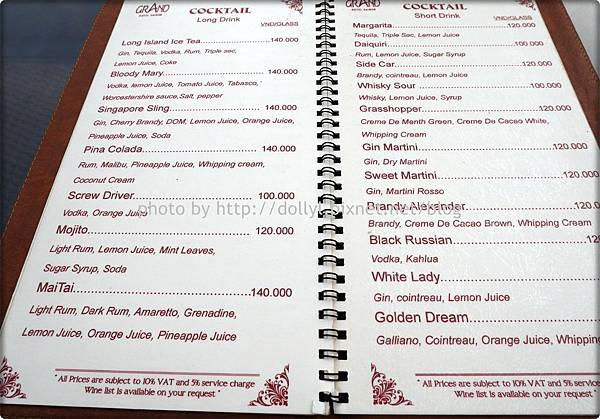 GRAND
COCKTAIL
Long Drink
VND/GLASS
Long Island Ice Tea....................140.000
Gin, Tequila, Vodka, Rum, Triple sec,
Lemon Juice, Coke
Bloody Mary..........................140.000
Vodka, lemon Juice, Tomato Juice, Tabasco,
Worcestershire sauce,Salt, pepper
Singapore Sling...................... 140.000
Gin, Cherry Brandy, DOM, Lemon Juice, Orange Juice,
Pineapple Juice, Soda
Pina Colada............................ 140.000
Rum, Malibu, Pineapple Juice, Whipping cream,
Coconut Cream
Screw Driver............................ 100.000
Vodka, Orange Juice
Mojito...................................... 120.000
Light Rum, Lemon Juice, Mint Leaves,
Sugar Syrup, Soda
MaiTai.......................................140.000
Light Rum, Dark Rum, Amaretto, Grenadine,
Lemon Juice, Orange Juice, Pineapple Juice
" All Prices are subject to 10% VAT and 5% service charge
Wine list is available on your request "
GRAND
HOTEL SAIGON
COCKTAIL
Short Drink
VND/GLASS
Margarita...............................120.000
Tequila, Triple Sec, Lemon Juice
Daiquiri.................................100.000
Rum, Lemon Juice, Sugar Syrup
Side Car.................................120.000
Brandy, cointreau, Lemon Juice
Whisky Sour............................100.000
Whisky, Lemon Juice, Syrup
Grasshopper............................120.000
Creme De Menth Green, Creme De Cacao White,
Whipping Cream
Gin Martini..............................120.000
Gin, Dry Martini
Sweet Martini...........................120.000
Gin, Martini Rosso
Brandy Alexander
Brandy, Creme De Cacao Brown, Whipping Cream
Black Russian
Vodka, Kahlua
White Lady
Gin, cointreau, Lemon Juice
Golden Dream
Galliano, Cointreau, Orange Juice, Whipping
" All Prices are subject to 10% VAT and 5% serv
Wine list is available on your request "
photo by http://dolly